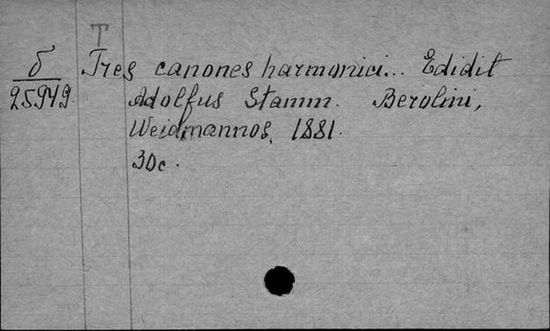 T
б Tres canones harmonici... Edidit
25949 Adolfus Stamm. Berolini,
Weidmannos, 1881.
30c.